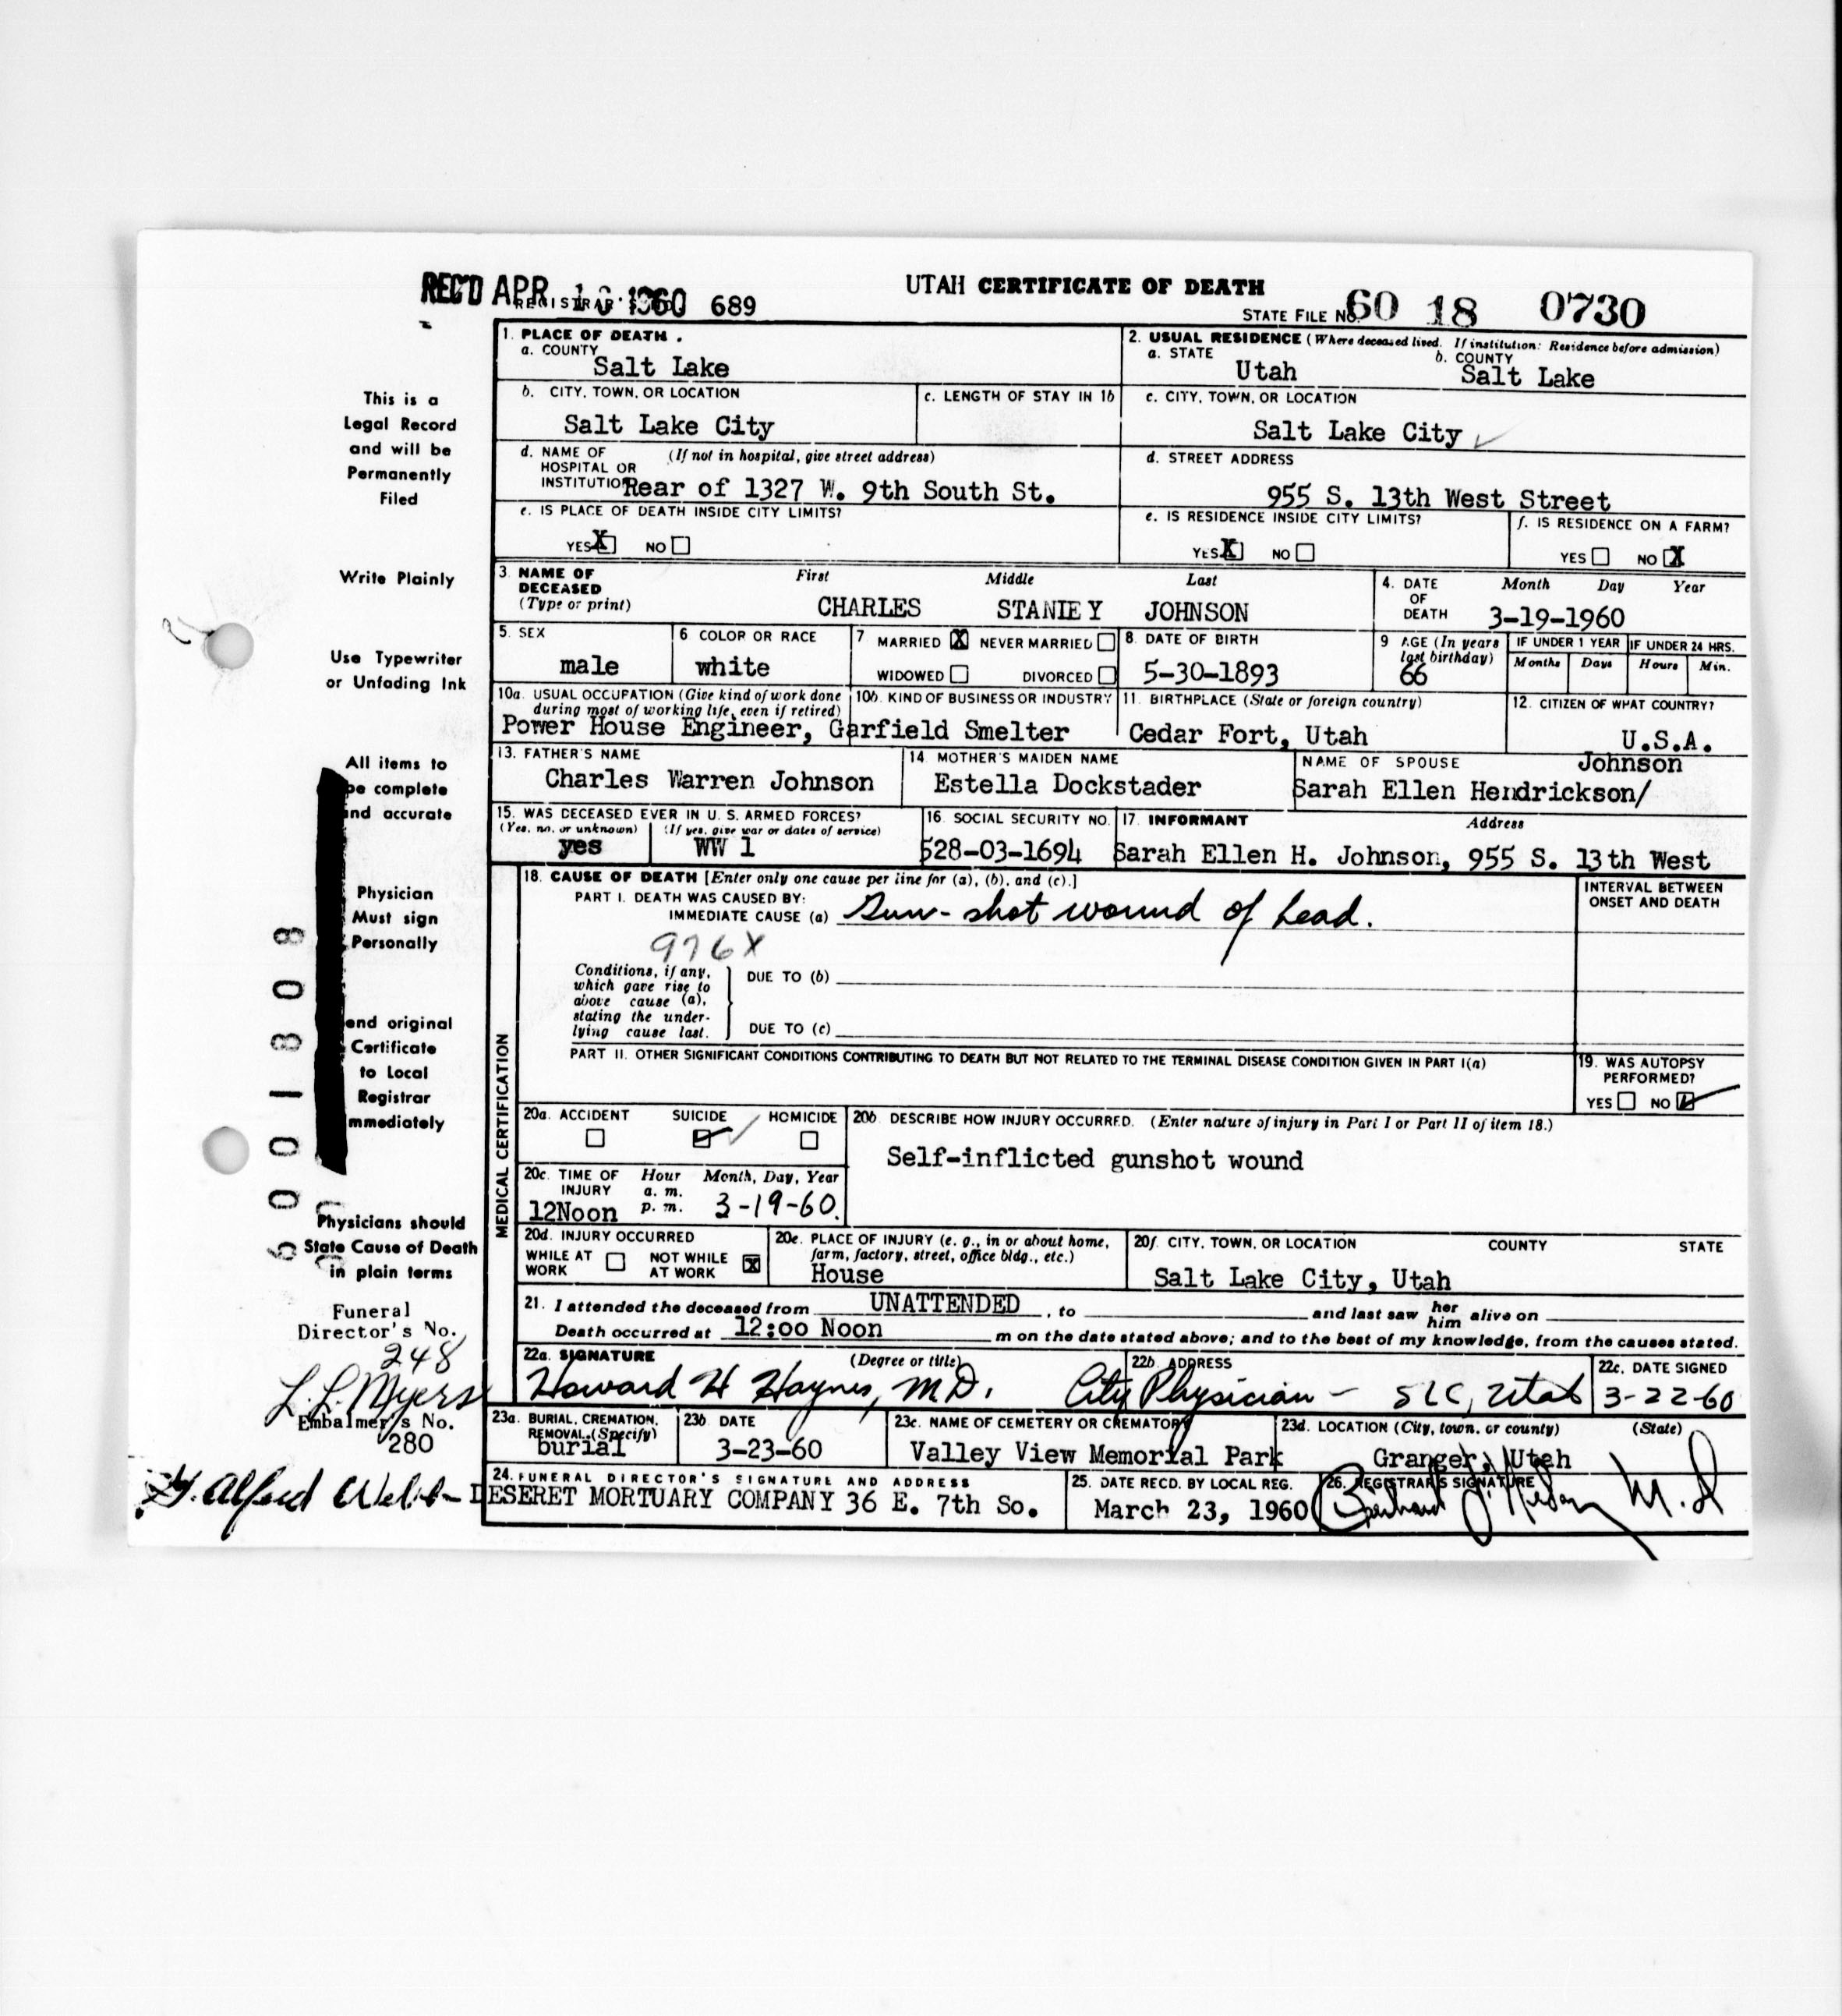 REC'D APR 1960
REGISTRAR'S 689
UTAH CERTIFICATE OF DEATH
STATE FILE NO. 60 18 0730
This is a
Legal Record
and will be
Permanently
Filed
Write Plainly
Use Typewriter
or Unfading Ink
All items to
be complete
and accurate
Physician
Must sign
Personally
end original
Certificate
to Local
Registrar
mmediately
Physicians should
State Cause of Death
in plain terms
6001808
Funeral
Director's No.
248
L. L. Myers
Embalmer's No.
280
1. PLACE OF DEATH
a. COUNTY
Salt Lake
2. USUAL RESIDENCE (Where deceased lived. If institution: Residence before admission)
a. STATE b. COUNTY
Utah Salt Lake
b. CITY, TOWN, OR LOCATION
Salt Lake City
c. LENGTH OF STAY IN 1b
c. CITY, TOWN, OR LOCATION
Salt Lake City
d. NAME OF HOSPITAL OR INSTITUTION (If not in hospital, give street address)
Rear of 1327 W. 9th South St.
d. STREET ADDRESS
955 S. 13th West Street
e. IS PLACE OF DEATH INSIDE CITY LIMITS?
YES X NO
e. IS RESIDENCE INSIDE CITY LIMITS?
YES X NO
f. IS RESIDENCE ON A FARM?
YES NO X
3. NAME OF DECEASED (Type or print)
First Middle Last
CHARLES STANLEY JOHNSON
4. DATE OF DEATH Month Day Year
3-19-1960
5. SEX
male
6. COLOR OR RACE
white
7 MARRIED X NEVER MARRIED
WIDOWED DIVORCED
8. DATE OF BIRTH
5-30-1893
9 AGE (In years last birthday)
66
IF UNDER 1 YEAR IF UNDER 24 HRS.
Months Days Hours Min.
10a. USUAL OCCUPATION (Give kind of work done during most of working life, even if retired)
10b. KIND OF BUSINESS OR INDUSTRY
Power House Engineer, Garfield Smelter
11. BIRTHPLACE (State or foreign country)
Cedar Fort, Utah
12. CITIZEN OF WHAT COUNTRY?
U.S.A.
13. FATHER'S NAME
Charles Warren Johnson
14. MOTHER'S MAIDEN NAME
Estella Dockstader
NAME OF SPOUSE
Johnson
Sarah Ellen Hendrickson/
15. WAS DECEASED EVER IN U. S. ARMED FORCES?
(Yes, no, or unknown) (If yes, give war or dates of service)
yes WW 1
16. SOCIAL SECURITY NO.
528-03-1694
17. INFORMANT Address
Sarah Ellen H. Johnson, 955 S. 13th West
MEDICAL CERTIFICATION
18. CAUSE OF DEATH [Enter only one cause per line for (a), (b), and (c).]
PART I. DEATH WAS CAUSED BY:
IMMEDIATE CAUSE (a) Gun-shot wound of head.
976X
INTERVAL BETWEEN ONSET AND DEATH
Conditions, if any, which gave rise to above cause (a), stating the underlying cause last.
DUE TO (b)
DUE TO (c)
PART II. OTHER SIGNIFICANT CONDITIONS CONTRIBUTING TO DEATH BUT NOT RELATED TO THE TERMINAL DISEASE CONDITION GIVEN IN PART I(a)
19. WAS AUTOPSY PERFORMED?
YES NO
20a. ACCIDENT SUICIDE HOMICIDE
20b DESCRIBE HOW INJURY OCCURRED. (Enter nature of injury in Part I or Part II of item 18.)
Self-inflicted gunshot wound
20c. TIME OF INJURY Hour a. m. p. m. Month, Day, Year
12Noon 3-19-60.
20d. INJURY OCCURRED
WHILE AT WORK NOT WHILE AT WORK X
20e. PLACE OF INJURY (e. g., in or about home, farm, factory, street, office bldg., etc.)
House
20f. CITY, TOWN, OR LOCATION COUNTY STATE
Salt Lake City, Utah
21. I attended the deceased from UNATTENDED , to and last saw her him alive on
Death occurred at 12:00 Noon m on the date stated above; and to the best of my knowledge, from the causes stated.
22a. SIGNATURE (Degree or title)
Howard H Haynes, M.D.
22b. ADDRESS
City Physician - SLC, Utah
22c. DATE SIGNED
3-22-60
23a. BURIAL, CREMATION, REMOVAL (Specify)
burial
23b DATE
3-23-60
23c. NAME OF CEMETERY OR CREMATORY
Valley View Memorial Park
23d. LOCATION (City, town, or county) (State)
Granger, Utah
24. FUNERAL DIRECTOR'S SIGNATURE AND ADDRESS
DESERET MORTUARY COMPANY 36 E. 7th So.
25. DATE RECD. BY LOCAL REG.
March 23, 1960
26. REGISTRAR'S SIGNATURE
M.D